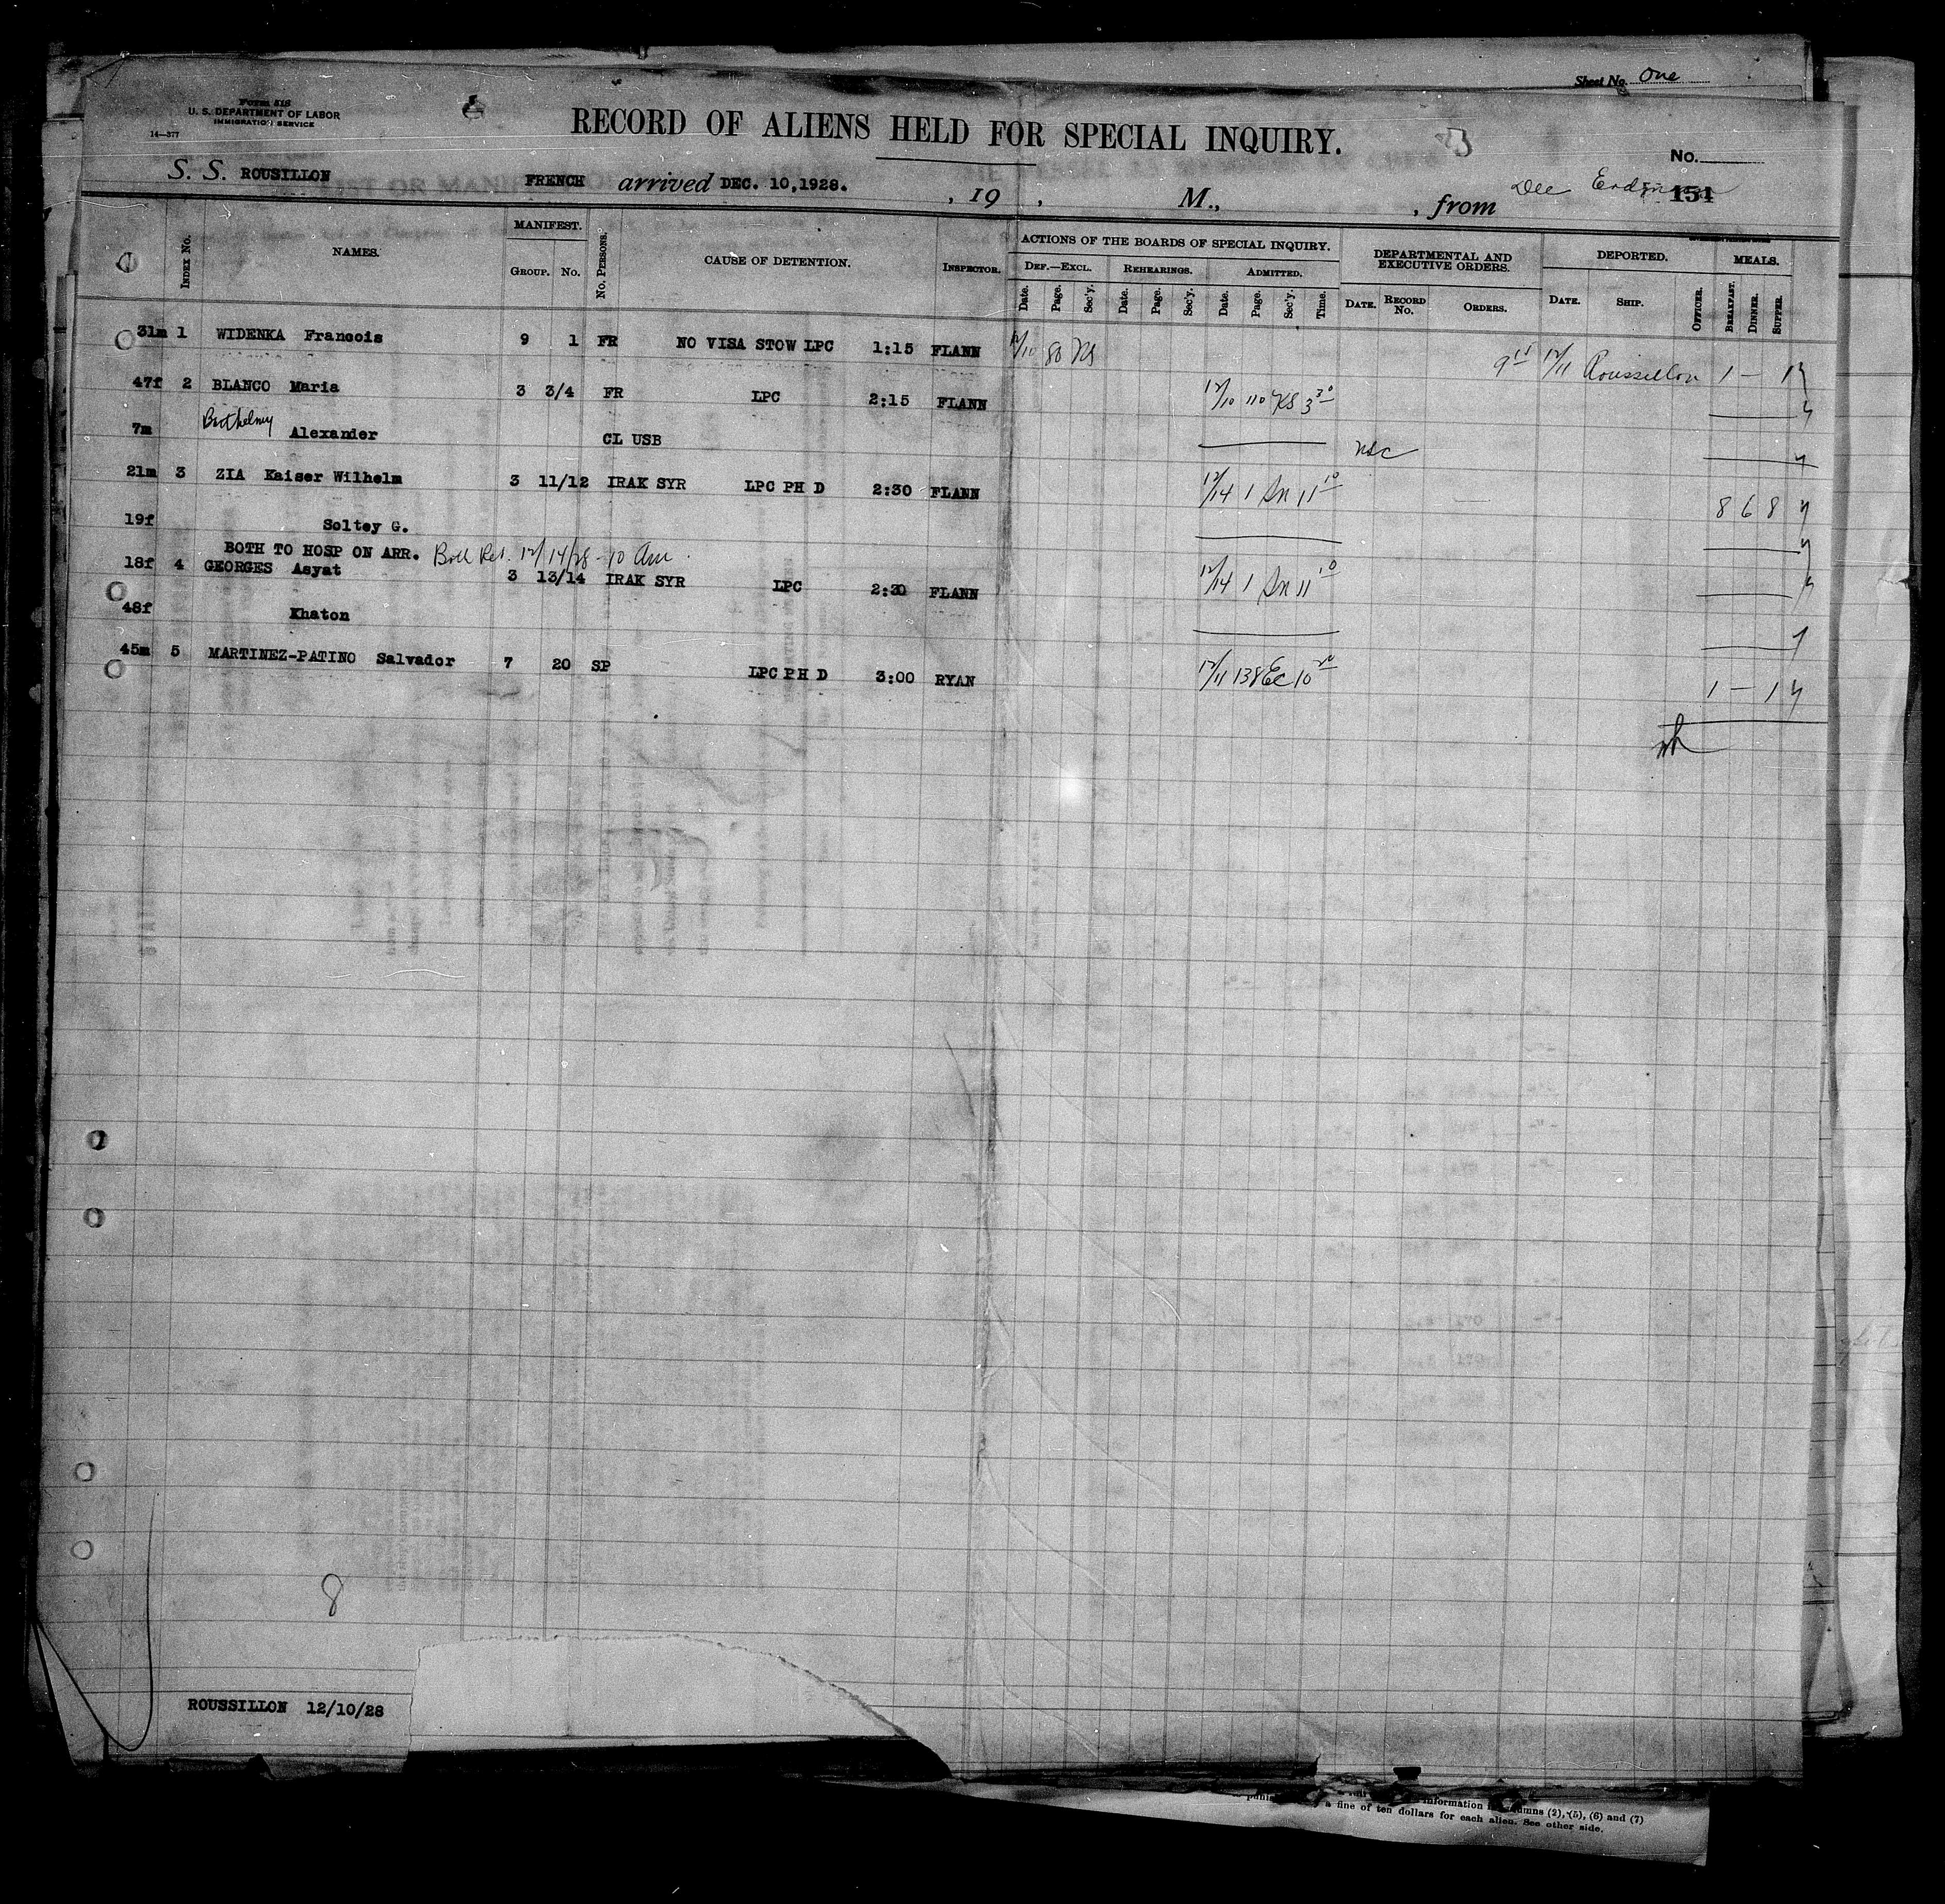 Sheet No. One
Form 518
U. S. DEPARTMENT OF LABOR
IMMIGRATION SERVICE
14—377
RECORD OF ALIENS HELD FOR SPECIAL INQUIRY.
No.
S. S. ROUSILLON FRENCH arrived DEC. 10,1928. , 19 , M., , from 151
INDEX No. NAMES. MANIFEST. GROUP. No. No. PERSONS. CAUSE OF DETENTION. INSPECTOR. ACTIONS OF THE BOARDS OF SPECIAL INQUIRY. DEF.—EXCL. REHEARINGS. ADMITTED. DEPARTMENTAL AND EXECUTIVE ORDERS. DEPORTED. MEALS.
Date. Page. Sec'y. Date. Page. Sec'y. Date. Page. Sec'y. Time. DATE. RECORD No. ORDERS. DATE. SHIP. OFFICER. BREAKFAST. DINNER. SUPPER.
31m 1 WIDENKA Francois 9 1 FR NO VISA STOW LPC 1:15 FLANN 12/10 80 KS 9 15 12/11 Roussillon 1 — 1
47f 2 BLANCO Maria 3 3/4 FR LPC 2:15 FLANN 12/10 110 KS 3 30
7m Barthelmy Alexander CL USB
21m 3 ZIA Kaiser Wilhelm 3 11/12 IRAK SYR LPC PH D 2:30 FLANN 12/14 1 Sn 11 10 8 6 8
19f Soltey G.
BOTH TO HOSP ON ARR. Both Rel. 12/14/28 - 10 Am.
18f 4 GEORGES Asyat 3 13/14 IRAK SYR LPC 2:30 FLANN 12/14 1 Sn 11 10
48f Khaton
45m 5 MARTINEZ-PATINO Salvador 7 20 SP LPC PH D 3:00 RYAN 12/11 138 EC 10 20 1 — 1
8
ROUSSILLON 12/10/28
information
(2), (5), (6) and (7)
a fine of ten dollars for each alien. See other side.